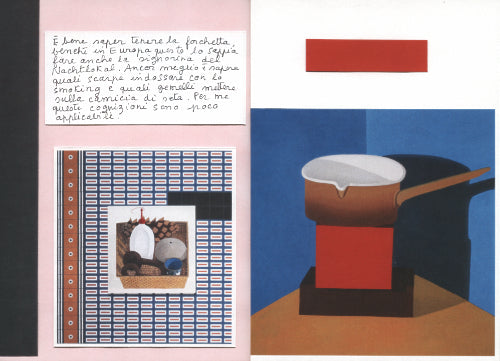 È bene saper tenere la forchetta
benché in Europa questo lo sappia
fare anche la signorina del
Nachtlokal. Ancor meglio è sapere
quali scarpe indossare con lo
smoking e quali gemelli mettere
sulla camicia di seta. Per me
queste cognizioni sono poco
applicabili.